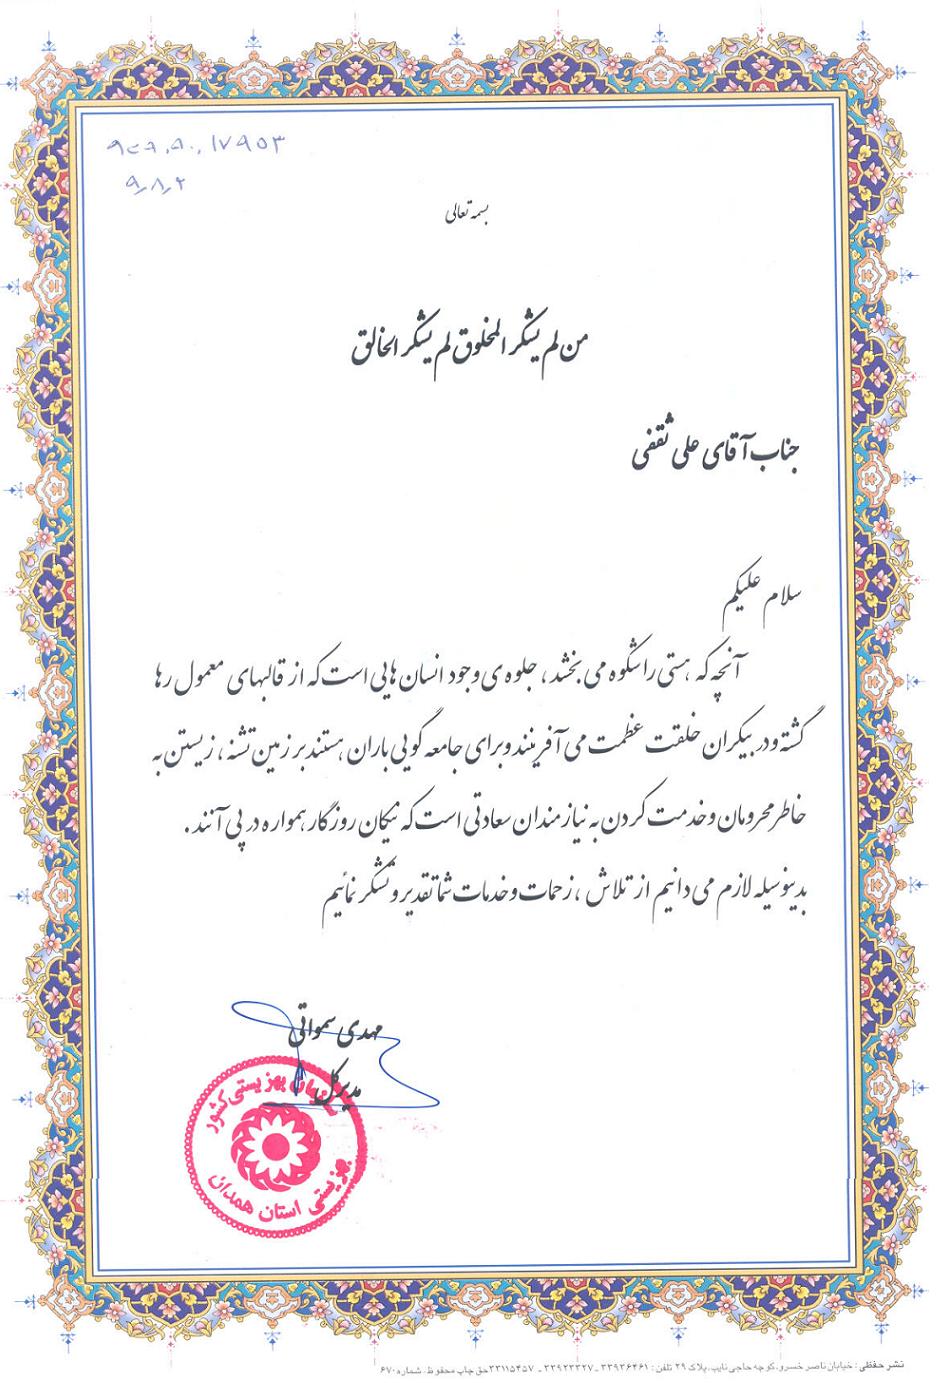 ۱۷۹۵۳
بسمه تعالی
من لم یشکر المخلوق لم یشکر الخالق
جناب آقای علی ثقفی
سلام علیکم
آنچه که هستی را شکوه می بخشد، جلوه ی وجود انسان هایی است که از قالبهای معمول رها
گشته و در بیکران خلقت عظمت می آفرینند و برای جامعه گویی باران هستند بر زمین تشنه، زیستن به
خاطر محرومان و خدمت کردن به نیازمندان سعادتی است که نیکان روزگار همواره در پی آنند.
بدینوسیله لازم می دانیم از تلاش، زحمات و خدمات شما تقدیر و تشکر نمائیم
مهدی سمواتی
مدیر کل
سازمان بهزیستی کشور
بهزیستی استان همدان
نشر حفظی: خیابان ناصر خسرو، کوچه حاجی نایب، پلاک ۲۹ تلفن: ۳۳۹۳۶۴۶۱ - ۳۳۹۲۳۳۲۷ - ۳۳۱۱۵۴۵۷ حق چاپ محفوظ. شماره ۶۷۰